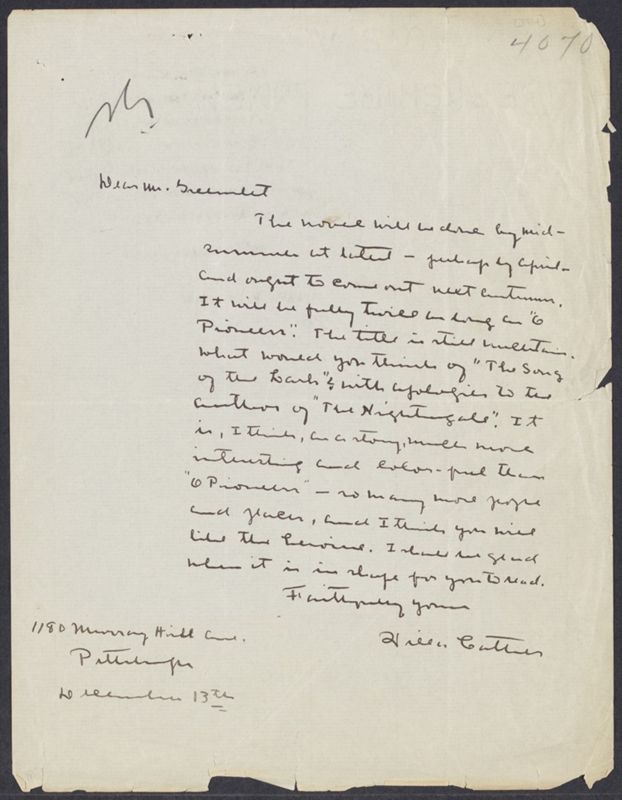 4070
Dear Mr. Greenslet
The novel will be done by mid-
summer at latest — perhaps by April —
and ought to come out next autumn.
It will be fully twice as long as "O
Pioneers". The title is still uncertain.
What would you think of "The Song
of the Lark"? with apologies to the
author of "The Nightingale". It
is, I think, as a story, much more
interesting and color-ful than
"O Pioneers" — so many more people
and places, and I think you will
like the heroine. I shall be glad
when it is in shape for you to read.
Faithfully yours
Willa Cather
1180 Murray Hill Ave.
Pittsburgh
December 13th